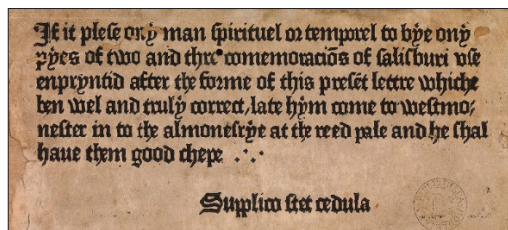 If it plese ony man spirituel or temporel to bye ony
pyes of two and thre comemoracioṅs of salisburi vse
enpryntid after the forme of this preset lettre whiche
ben wel and truly correct, late hym come to westmo-
nester in to the almonesrye at the reed pale and he shal
haue them good chepe .·.
Supplico stet cedula